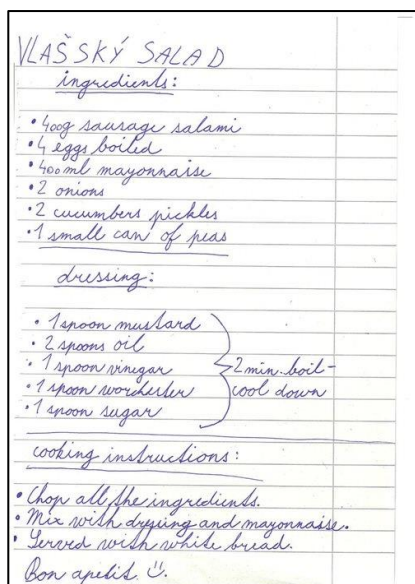 VLAŠSKÝ SALAD
ingredients:
• 400g sausage salami
• 4 eggs boiled
• 400ml mayonnaise
• 2 onions
• 2 cucumbers pickles
• 1 small can of peas
dressing:
• 1 spoon mustard
• 2 spoons oil
• 1 spoon vinegar
• 1 spoon worchester
• 1 spoon sugar
2 min. boil -
cool down
cooking instructions:
• Chop all the ingredients.
• Mix with dressing and mayonnaise.
• Served with white bread.
Bon apetit. ☺.